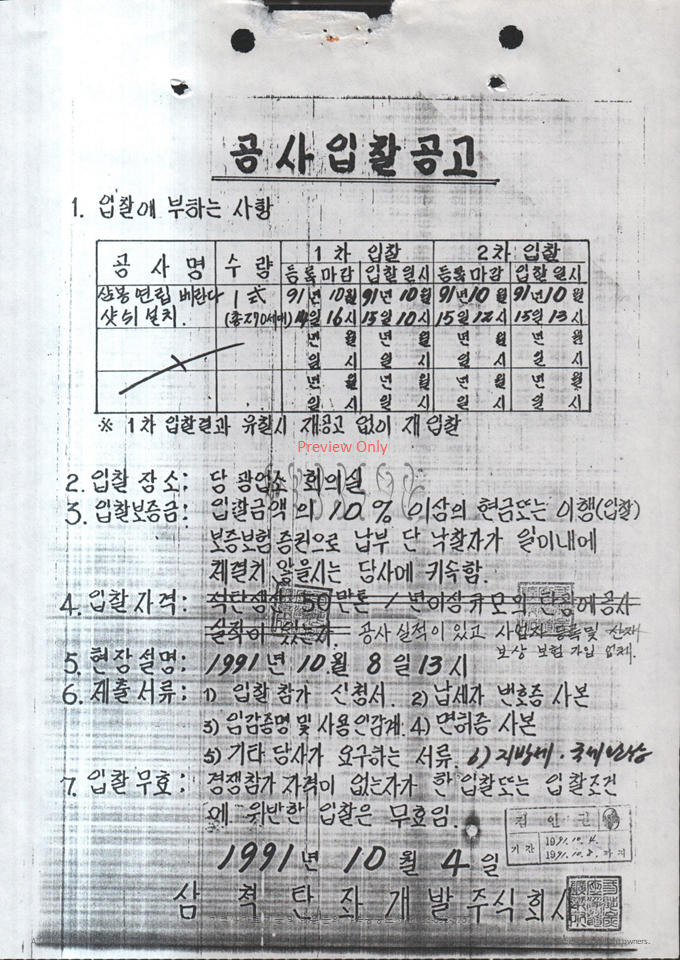 공사입찰공고
1. 입찰에 부하는 사항
공사명 수량 1차 입찰 2차 입찰
등록마감 입찰일시 등록마감 입찰일시
연립 베란다 1式 91년 10월 91년 10월 91년 10월 91년 10월
샷쉬 설치. (총270세대) 14일 16시 15일 10시 15일 12시 15일 13시
년 월 년 월 년 월 년 월
일 시 일 시 일 시 일 시
년 월 년 월 년 월 년 월
일 시 일 시 일 시 일 시
※ 1차 입찰결과 유찰시 재공고 없이 재입찰
Preview Only
2. 입찰 장소: 당 광업소 회의실
3. 입찰보증금: 입찰금액의 10% 이상의 현금또는 이행(입찰)
보증보험증권으로 납부 단 낙찰자가 일이내에
체결치 않을시는 당사에 귀속함.
4. 입찰자격: 석탄생산 50만톤 / 년이상규모의 탄광에공사
실적이 있는자. 공사실적이 있고 사업자 등록및 산재
보상 보험 가입 업체.
5. 현장설명: 1991년 10월 8일 13시
6. 제출서류: 1) 입찰참가 신청서. 2) 납세자 번호증 사본
3) 인감증명 및 사용인감계. 4) 면허증 사본
5) 기타 당사가 요구하는 서류. 6) 지방세. 국세
7. 입찰무효: 경쟁참가자격이 없는자가 한 입찰또는 입찰조건
에 위반한 입찰은 무효임.
기간 1991. 10. 4.
1991. 10. 8. 까지
1991년 10월 4일
삼척탄좌개발주식회사